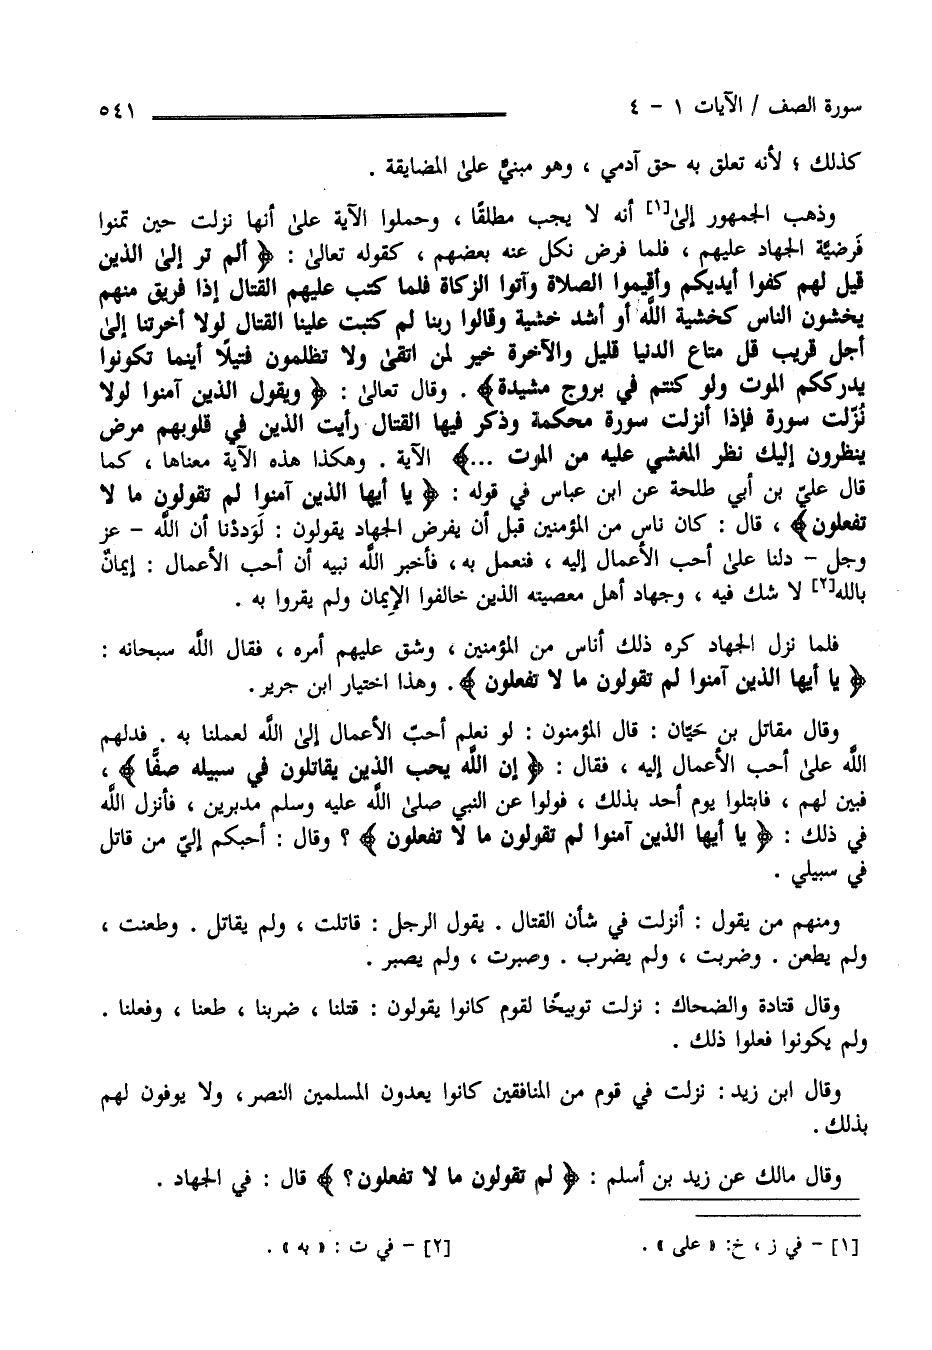 سورة الصف / الآيات ١ - ٤ ٥٤١
كذلك ؛ لأنه تعلق به حق آدمي ، وهو مبنيٌّ على المضايقة .
وذهب الجمهور إلى[١] أنه لا يجب مطلقًا ، وحملوا الآية على أنها نزلت حين تمنوا
فَرضيَّة الجهاد عليهم ، فلما فرض نكل عنه بعضهم ، كقوله تعالى : ﴿ ألم تر إلى الذين
قيل لهم كفوا أيديكم وأقيموا الصلاة وآتوا الزكاة فلما كتب عليهم القتال إذا فريق منهم
يخشون الناس كخشية اللَّه أو أشد خشية وقالوا ربنا لم كتبت علينا القتال لولا أخرتنا إلى
أجل قريب قل متاع الدنيا قليل والآخرة خير لمن اتقى ولا تظلمون فتيلًا أينما تكونوا
يدرككم الموت ولو كنتم في بروج مشيدة﴾ . وقال تعالى : ﴿ ويقول الذين آمنوا لولا
نُزّلت سورة فإذا أنزلت سورة محكمة وذكر فيها القتال رأيت الذين في قلوبهم مرض
ينظرون إليك نظر المغشي عليه من الموت ...﴾ الآية . وهكذا هذه الآية معناها ، كما
قال عليّ بن أبي طلحة عن ابن عباس في قوله : ﴿ يا أيها الذين آمنوا لم تقولون ما لا
تفعلون﴾ ، قال : كان ناس من المؤمنين قبل أن يفرض الجهاد يقولون : لَوَددْنا أن اللَّه - عز
وجل - دلنا على أحب الأعمال إليه ، فنعمل به، فأخبر اللَّه نبيه أن أحب الأعمال : إيمانٌ
بالله[٢] لا شك فيه ، وجهاد أهل معصيته الذين خالفوا الإِيمان ولم يقروا به .
فلما نزل الجهاد كره ذلك أناس من المؤمنين ، وشق عليهم أمره ، فقال اللَّه سبحانه :
﴿ يا أيها الذين آمنوا لم تقولون ما لا تفعلون ﴾. وهذا اختيار ابن جرير.
وقال مقاتل بن حَيّان : قال المؤمنون : لو نعلم أحبّ الأعمال إلى اللَّه لعملنا به . فدلهم
اللَّه على أحب الأعمال إليه ، فقال : ﴿ إن اللَّه يحب الذين يقاتلون في سبيله صفًّا ﴾ ،
فبين لهم ، فابتلوا يوم أحد بذلك ، فولوا عن النبي صلى اللَّه عليه وسلم مدبرين ، فأنزل اللَّه
في ذلك : ﴿ يا أيها الذين آمنوا لم تقولون ما لا تفعلون ﴾ ؟ وقال : أحبكم إليّ من قاتل
في سبيلي .
ومنهم من يقول : أنزلت في شأن القتال . يقول الرجل : قاتلت ، ولم يقاتل . وطعنت ،
ولم يطعن . وضربت ، ولم يضرب . وصبرت ، ولم يصبر .
وقال قتادة والضحاك : نزلت توبيخًا لقوم كانوا يقولون : قتلنا ، ضربنا ، طعنا ، وفعلنا .
ولم يكونوا فعلوا ذلك .
وقال ابن زيد: نزلت في قوم من المنافقين كانوا يعدون المسلمين النصر، ولا يوفون لهم
بذلك.
وقال مالك عن زيد بن أسلم : ﴿ لم تقولون ما لا تفعلون؟ ﴾ قال : في الجهاد .
[١] - في ز ، خ: « على » . [٢] - في ت : « به » .